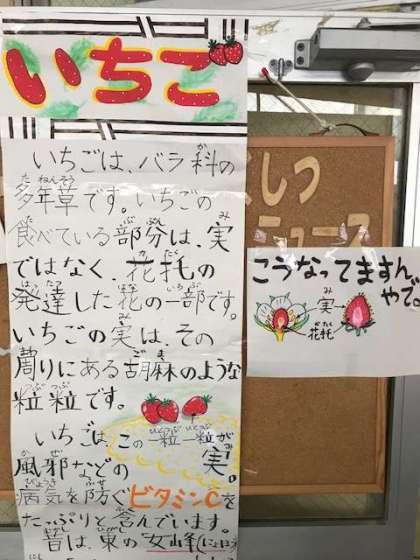 いちご
いちごは、バラ科の
多年草です。いちごの
食べている部分は、実
ではなく、花托の
発達した花の一部です。
いちごの実は、その
周りにある胡麻のような
粒粒です。
いちごは、この一粒一粒が
実。
風邪などの
病気を防ぐビタミンCを
たっぷりと含んでいます。
昔は、東の「女峰
しつ
ニュース
こうなってますんやで。
実
花托